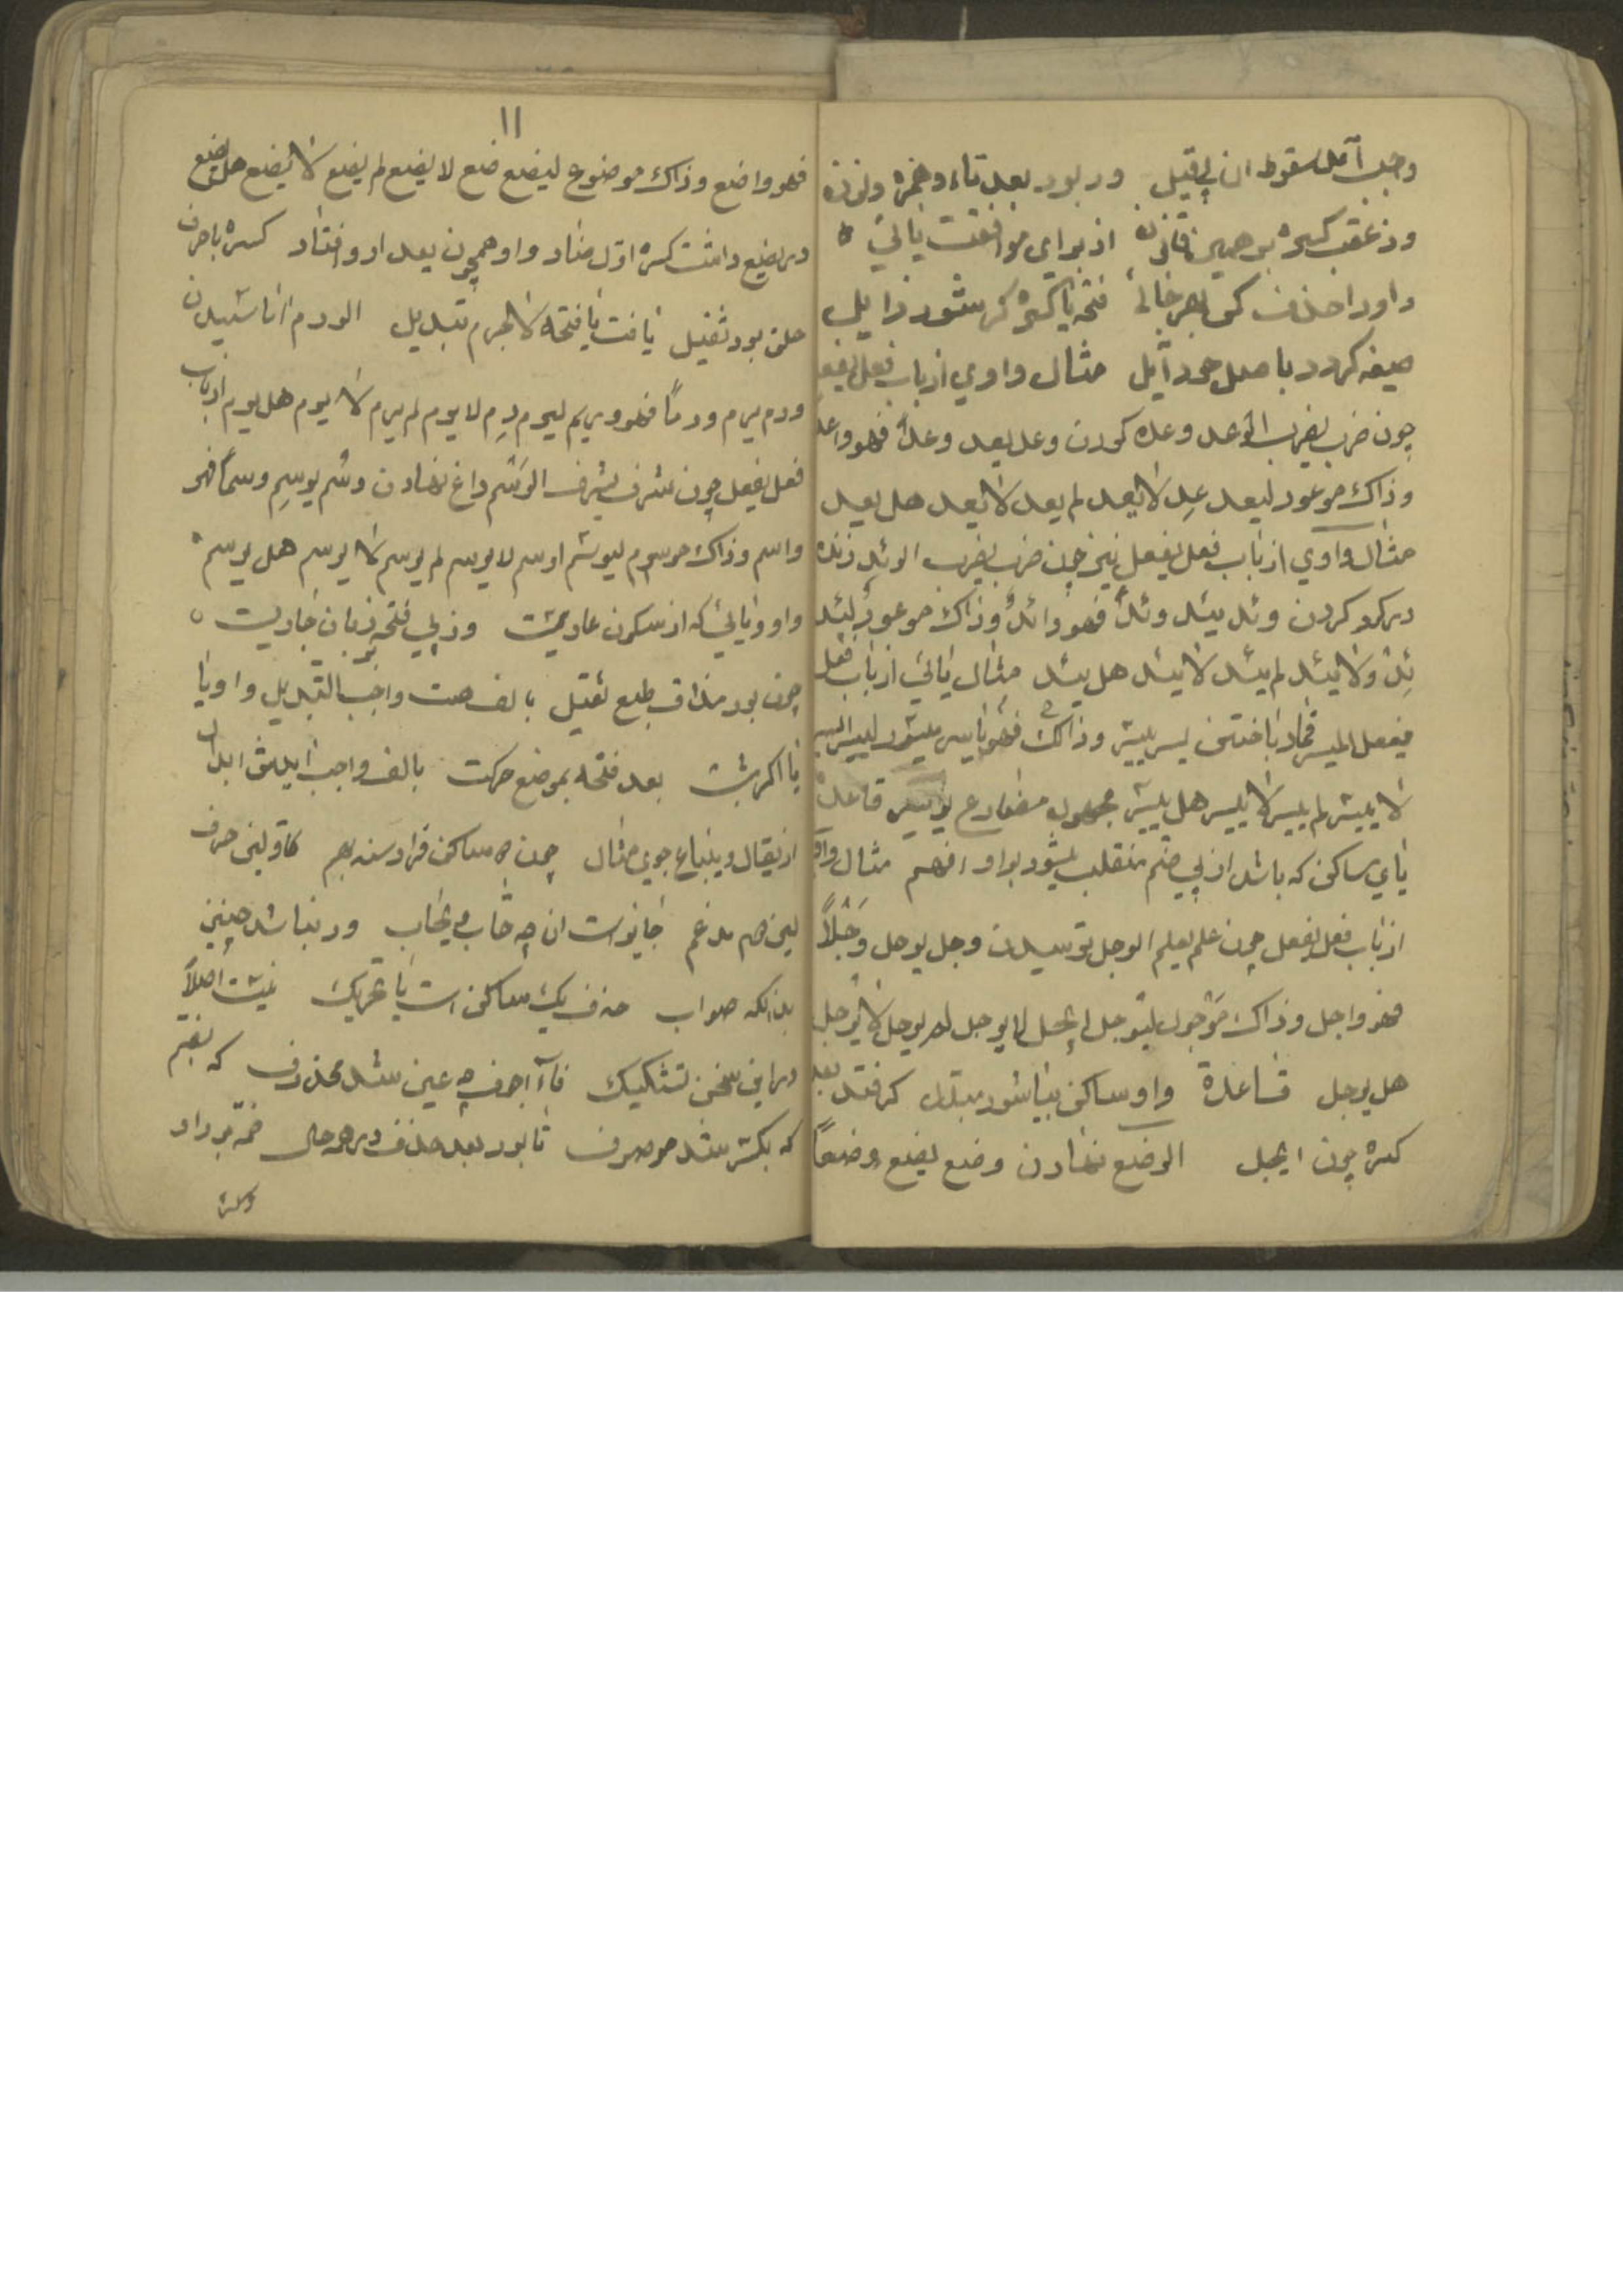 وجب آمد سقوط ان بی قیل ور بود بعد تاء و همزه و نون
وز عقب کسره بر همین قانون از برای موافقت یائی
واو را حذف کن بهر حالی فتحه یا کسره کر شود زایل
صیغه کردد باصل خود آیل مثال واوی از باب فعل یفعل
چون ضرب یضرب الوعد وعده کردن وعد یعد وعدا فهو واعد
وذاک موعود لیعد عد لا یعد لم یعد لا یعد هل یعد
مثال واوی از باب فعل یفعل نیز چون ضرب یضرب الوئد زنده
در کور کردن وئد یئد وئدا فهو وائد وذاک موعود لیئد
ئد ولا یئد لم یئد لا یئد هل یئد مثال یائی از باب فعل
یفعل المیسر قمار باختن یسر ییسر وذاک فهو یاسر میسور لییسر ایسر
لا ییسر لم ییسر لا ییسر هل ییسر مجهول مضارع یوسر قاعدة
یای ساکن که باشد از پی ضم منقلب میشود بواو افهم مثال واوی
از باب فعل یفعل چون علم یعلم الوجل ترسیدن وجل یوجل وجلا
فهو واجل وذاک موجول لیوجل ایجل لا یوجل لم یوجل لا یوجل
هل یوجل قاعدة واو ساکن بیا شود مبدل کر فتد بعد
کسره چون ایجل الوضع نهادن وضع یضع وضعا
۱۱
فهو واضع وذاک موضوع لیضع ضع لا یضع لم یضع لا یضع هل یضع
در یضع داشت کسره اول ضاد واو همچون یعد ازو افتاد کسره با حرف
حلق بود ثقیل یافت با فتحه لاجرم تبدیل الورم اماسیدن
ورم یرم ورما فهو وریم لیرم رم لا یرم لم یرم لا یرم هل یرم از باب
فعل یفعل چون شرف یشرف الوسم داغ نهادن وسم یوسم وسما فهو
واسم وذاک موسوم لیوسم اوسم لا یوسم لم یوسم لا یوسم هل یوسم
واو ویائی که از سکون عاریست وز پی فتحه بر زبان جاریست
چون بود مذاق طبع ثقیل بالف هست واجب التبدیل واو یا
یا اکر هست بعد فتحه بموضع حرکت بالف واجب ابدال
از یقال و یباع جوی مثال چون دو ساکن فرا رسند بهم کاولین حرف
لین دوم مدغم جایز است ان چه شاب یخاب ور نباشد چنین
بدانکه صواب حذف یک ساکن است یا تحریک نیست اصلا
در این سخن تشکیک فاء اجوف چه عین شد محذوف که بضم
که بکسر شد موصوف تا بود بعد حذف در همه حال ضمه بر واو
وکسره